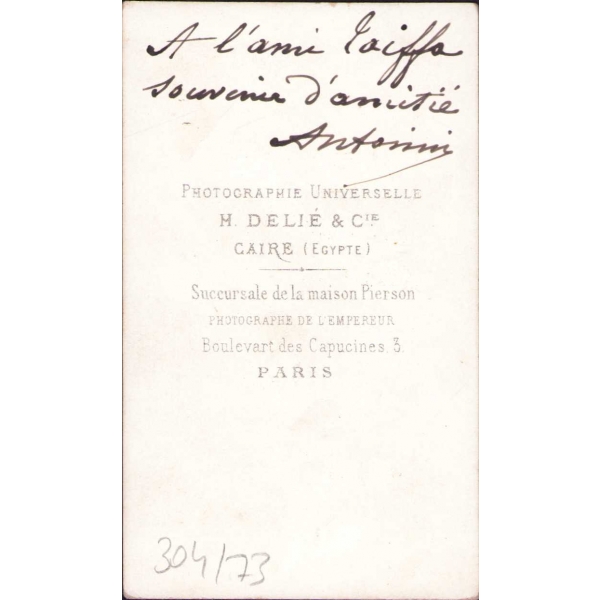 A l'ami Taiffa
souvenir d'amitié
Antonini
PHOTOGRAPHIE UNIVERSELLE
H. DELIÉ & CIE
CAIRE (EGYPTE)
Succursale de la maison Pierson
PHOTOGRAPHE DE L'EMPEREUR
Boulevart des Capucines, 3.
PARIS
304/73